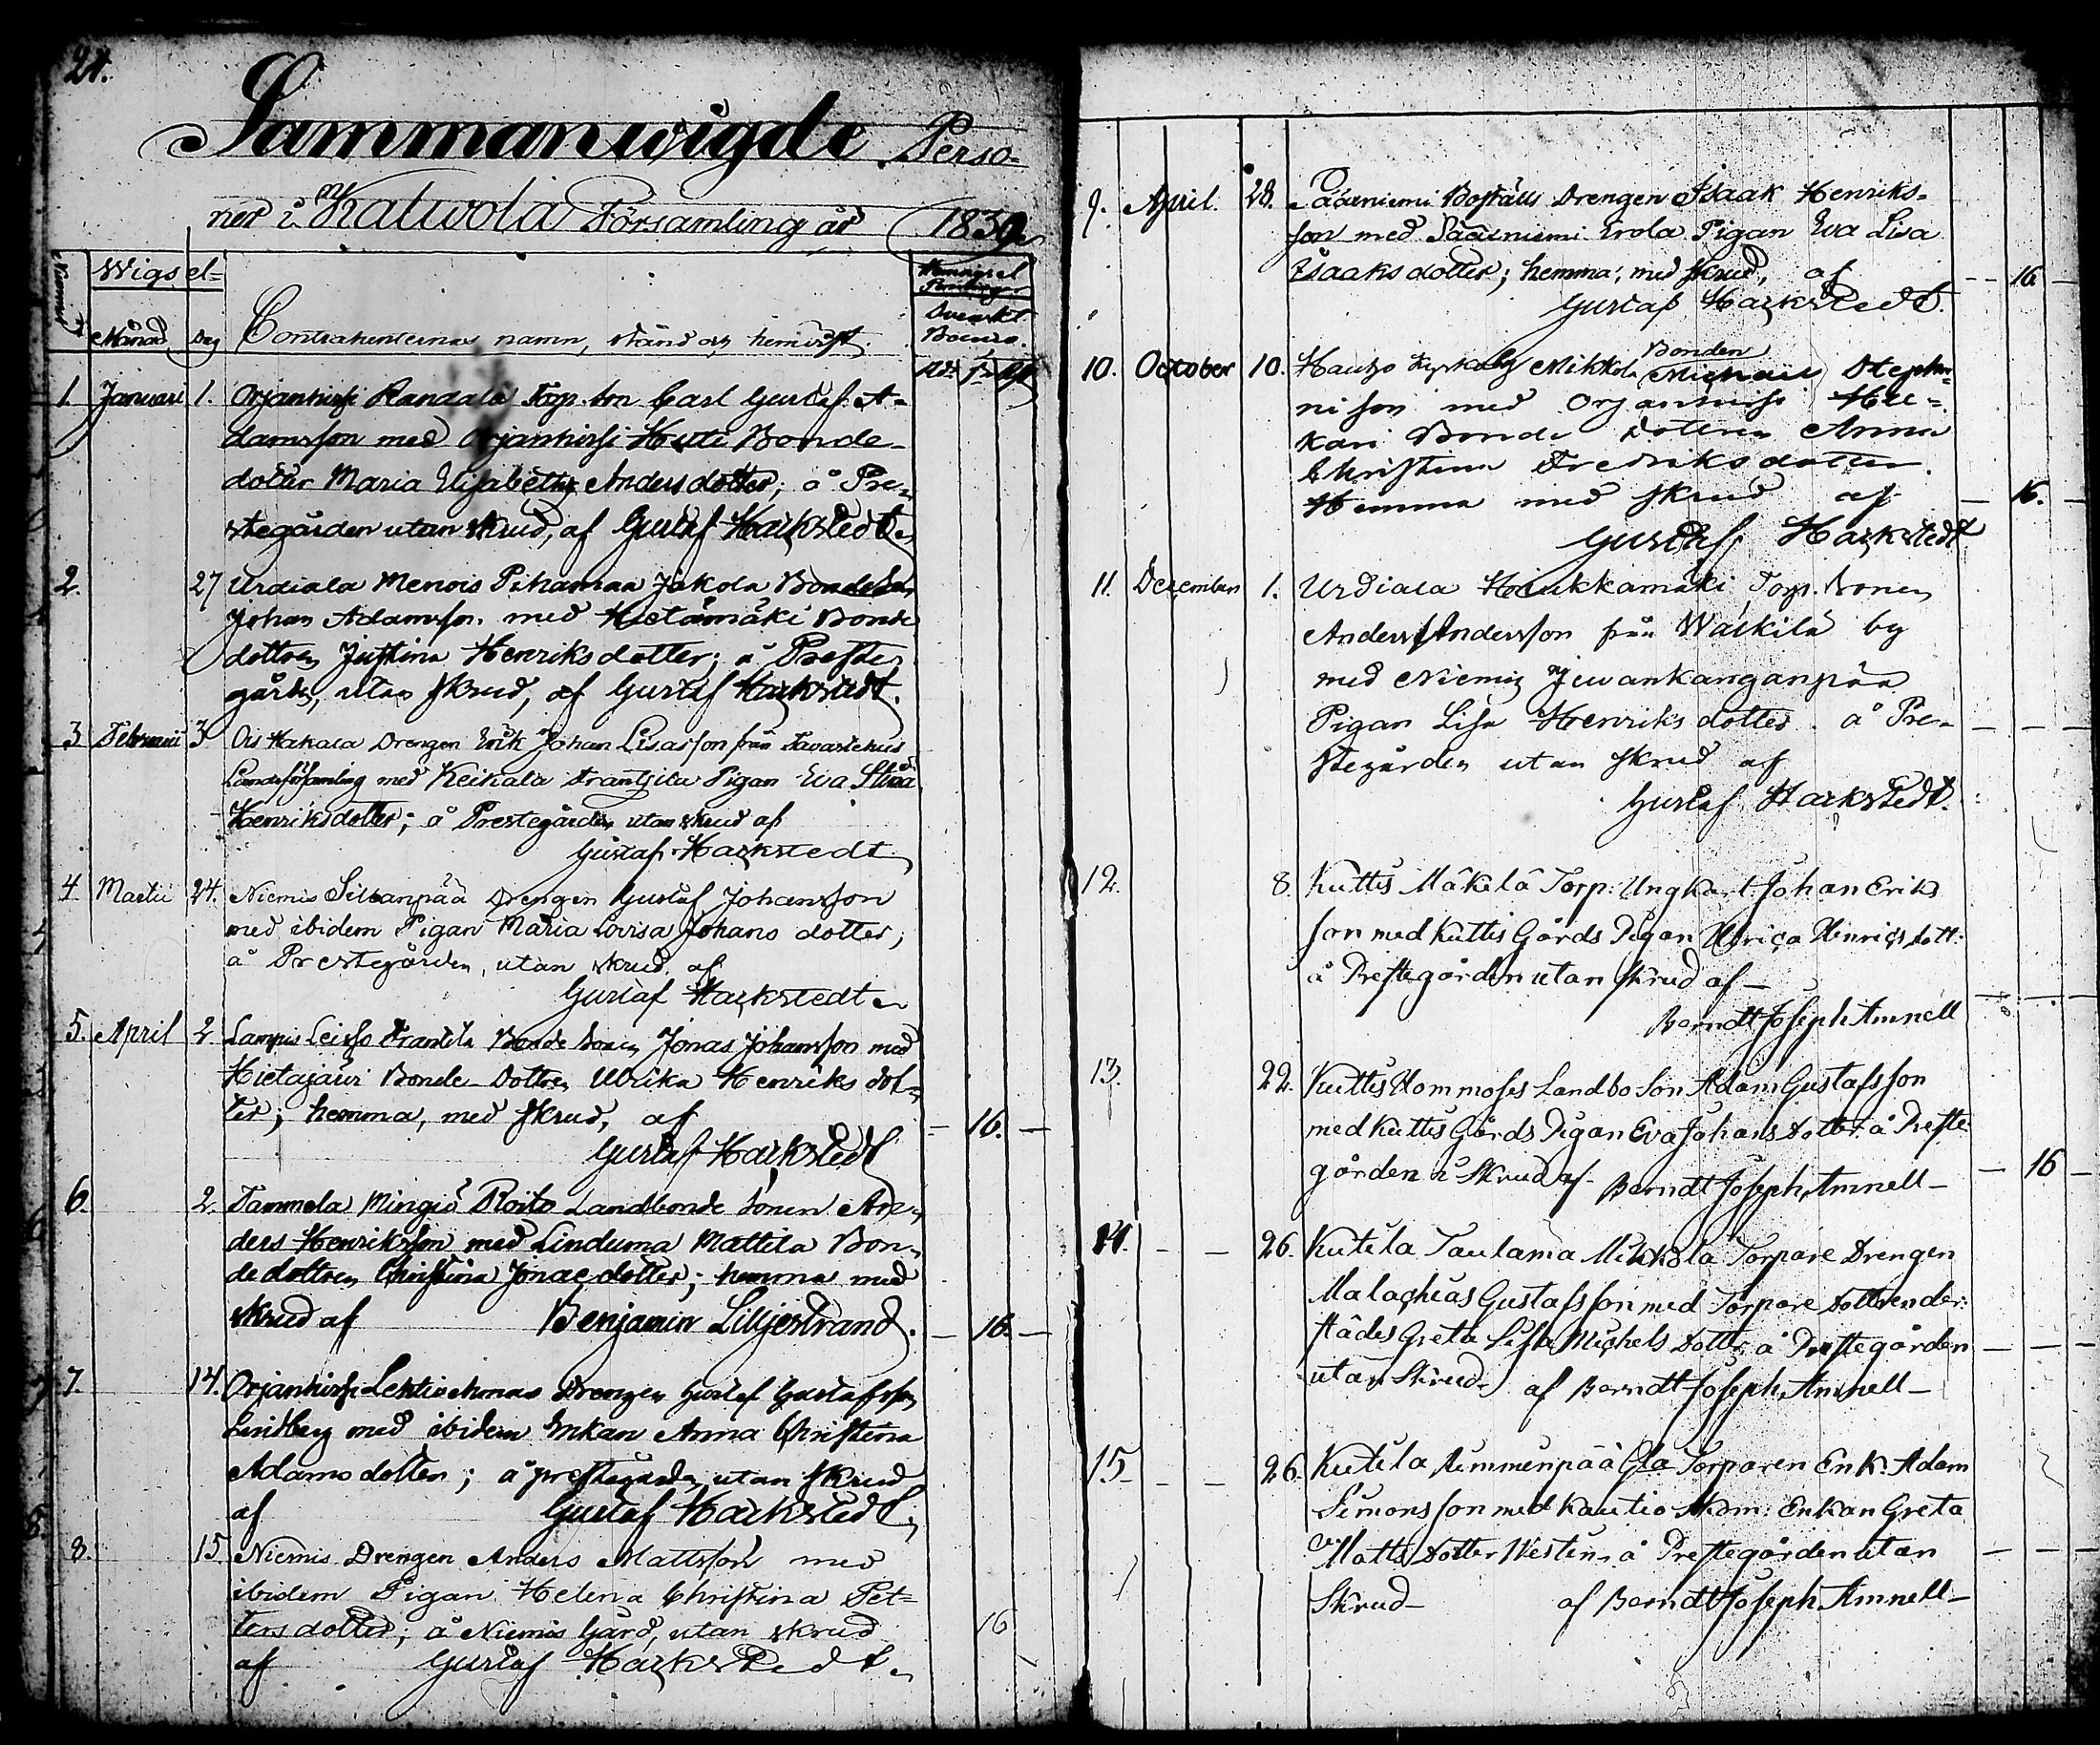 24.
Sammanwigde Perso-
ner i Kalwola Församling år 1839
Wigsel-
Månad Dag Contrahenternas namn, stånd och hemvist.
1. Januari 1. Orjanhirsi Randala Torp. son Carl Gustaf A-
damsson med Orjanhirsi Huti Bonde
dotter Maria Elisabeth Andersdotter; å Pre-
stegården utan skrud, af Gustaf Harkstedt.
2. 27 Urdiala Menois Pihamaa Jakola Bonde Son
Johan Adamsson med Hietamäki Bonde
dottren Justina Henriksdotter; å Preste
gården, utan skrud, af Gustaf Harkstedt.
3 Februarii 3 Ois Hakala Drengen Erik Johan Lisasson från Tavastehus
Landsförsamling med Keikala Frantsila Pigan Eva Stina
Henriksdotter; å Prestegården utan skrud af
Gustaf Harkstedt
4 Martii 24. Niemis Sillanpää Drengen Gustaf Johansson
med ibidem Pigan Maria Lovisa Johans dotter;
å Prestegården, utan skrud. af
Gustaf Harkstedt
5. April 2. Lampis Leiso Frantila Bonde Sonen Jonas Johansson med
Hietajärvi Bonde Dottren Ulrika Henriks dot-
ter; hemma, med skrud, af = 16. —
Gustaf Harkstedt
6. 2. Tammela Mingiö Roito Landbonde Sonen An-
ders Henriksson med Linduma Mattila Bon-
de dottren Christina Jonae dotter; hemma med
skrud af Benjamin Liljestrand. — 16. —
7. 14. Orjanhirsi Lehtischmas Drengen Gustaf Gustafsson
Lindberg med ibidem Enkan Anna Christina
Adams dotter; å prestegården utan skrud
af Gustaf Harkstedt
8. 15. Niemis Drengen Anders Mattsson med
ibidem Pigan Helena Christina Pet-
ters dotter; å Niemis Gård, utan skrud 16
af Gustaf Harkstedt
9. April. 28. Pääniemi Boställs Drengen Isaak Henriks-
son med Pääniemi Erola Pigan Eva Lisa
Isaaksdotter; hemma; med skrud, af — 16 —
Gustaf Harkstedt.
Bonden
10. October 10. Mikkola Michael Stepha-
ni son med Orjanhirsi Hu-
kari Bonde dottren Anna
Christina Fredriksdotter.
Hemma med skrud af — 16. —
Gustaf Harkstedt
11. December 1. Urdiala Houkkamäki Torp. Sonen
Anders Andersson från Warkila by
med Niemis Juvankanganpää
Pigan Lisa Henriksdotter. å Pre- — — —
stegården utan skrud af
Gustaf Harkstedt.
12. 8. Kuttis Mäkelä Torp: Ungkarl Johan Eriks
son med Kuttis Gårds Pigan Ulrica Henrics dott:
å Prestegården utan skrud af —
Berndt Joseph Amnell
13. 22. Kuttis Uommoses Landbo Son Adam Gustafsson
med Kuttis Gårds Pigan Eva Johans Dotter å Preste
gården i Skrud af Berndt Joseph Amnell — — 16 —
14. — — 26. Kutila Taulama Mikkola Torpare Drengen
Malachias Gustafsson med Torpare Dottren der:
städes Greta Lisa Michels Dotter å Prestegården — — —
utan Skrud af Berndt Joseph Amnell —
15 — — 26. Kutila Rimmenpää Ylä Torparen Enk. Adam
Simonsson med Kautio Skom: Enkan Greta
Matts Dotter Westin å Prestegården utan — — —
Skrud — af Berndt Joseph Amnell —